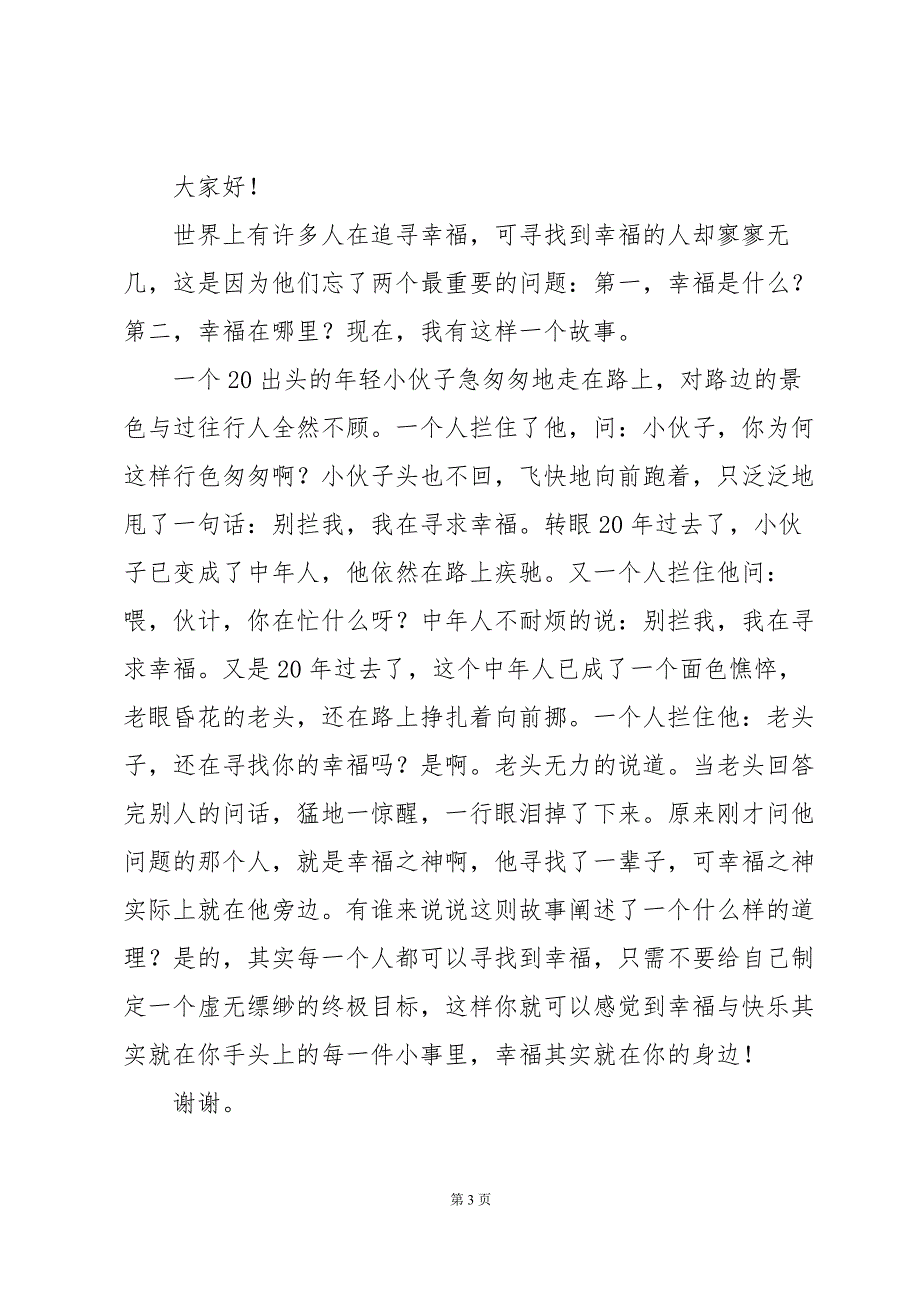 大家好！
世界上有许多人在追寻幸福，可寻找到幸福的人却寥寥无
几，这是因为他们忘了两个最重要的问题：第一，幸福是什么？
第二，幸福在哪里？现在，我有这样一个故事。
一个 20 出头的年轻小伙子急匆匆地走在路上，对路边的景
色与过往行人全然不顾。一个人拦住了他，问：小伙子，你为何
这样行色匆匆啊？小伙子头也不回，飞快地向前跑着，只泛泛地
甩了一句话：别拦我，我在寻求幸福。转眼 20 年过去了，小伙
子已变成了中年人，他依然在路上疾驰。又一个人拦住他问：
喂，伙计，你在忙什么呀？中年人不耐烦的说：别拦我，我在寻
求幸福。又是 20 年过去了，这个中年人已成了一个面色憔悴，
老眼昏花的老头，还在路上挣扎着向前挪。一个人拦住他：老头
子，还在寻找你的幸福吗？是啊。老头无力的说道。当老头回答
完别人的问话，猛地一惊醒，一行眼泪掉了下来。原来刚才问他
问题的那个人，就是幸福之神啊，他寻找了一辈子，可幸福之神
实际上就在他旁边。有谁来说说这则故事阐述了一个什么样的道
理？是的，其实每一个人都可以寻找到幸福，只需不要给自己制
定一个虚无缥缈的终极目标，这样你就可以感觉到幸福与快乐其
实就在你手头上的每一件小事里，幸福其实就在你的身边！
谢谢。
第 3 页